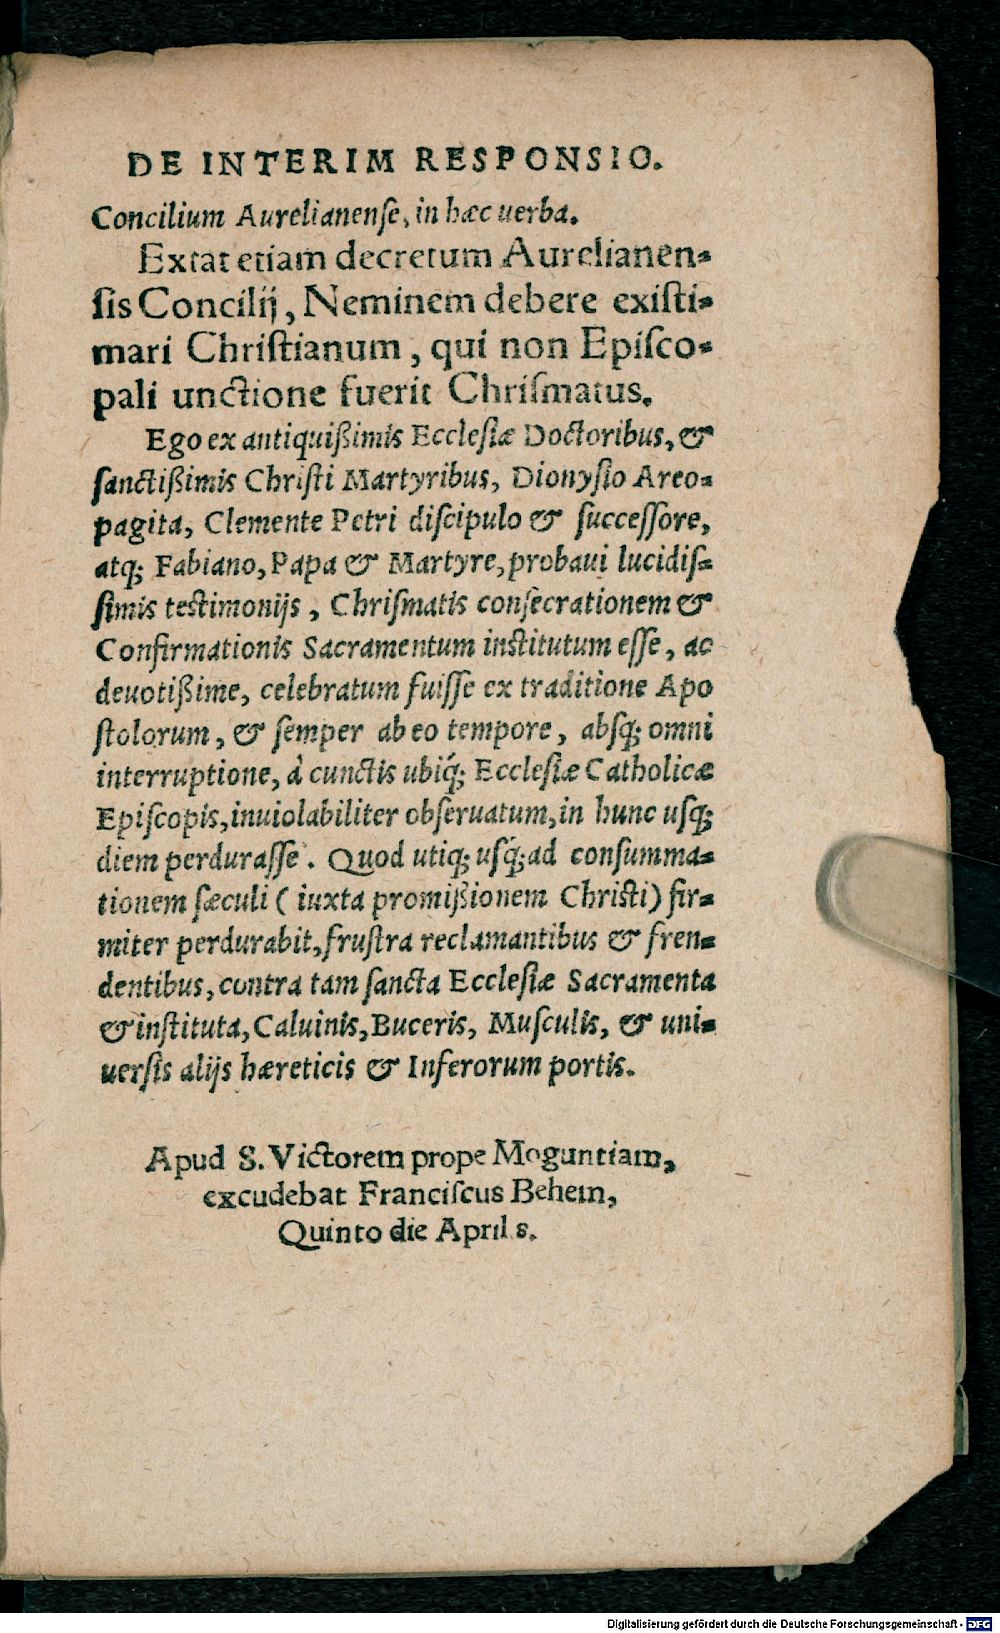 DE INTERIM RESPONSIO.
Concilium Aurelianense, in hæc uerba.
Extat etiam decretum Aurelianen-
sis Concilij, Neminem debere existi-
mari Christianum, qui non Episco-
pali unctione fuerit Chrismatus.
Ego ex antiquißimis Ecclesiæ Doctoribus, &
sanctißimis Christi Martyribus, Dionysio Areo-
pagita, Clemente Petri discipulo & successore,
atq; Fabiano, Papa & Martyre, probaui lucidis-
simis testimonijs, Chrismatis consecrationem &
Confirmationis Sacramentum institutum esse, ac
deuotißime, celebratum fuisse ex traditione Apo
stolorum, & semper ab eo tempore, absq; omni
interruptione, à cunctis ubiq́; Ecclesiæ Catholicæ
Episcopis, inuiolabiliter obseruatum, in hunc usq;
diem perdurasse. Quod utiq; usq́; ad consumma-
tionem sæculi (iuxta promißionem Christi) fir-
miter perdurabit, frustra reclamantibus & fren-
dentibus, contra tam sancta Ecclesiæ Sacramenta
& instituta, Caluinis, Buceris, Musculis, & uni-
uersis alijs hæreticis & Inferorum portis.
Apud S. Victorem prope Moguntiam,
excudebat Franciscus Behem,
Quinto die Aprilis.
Digitalisierung gefördert durch die Deutsche Forschungsgemeinschaft - DFG